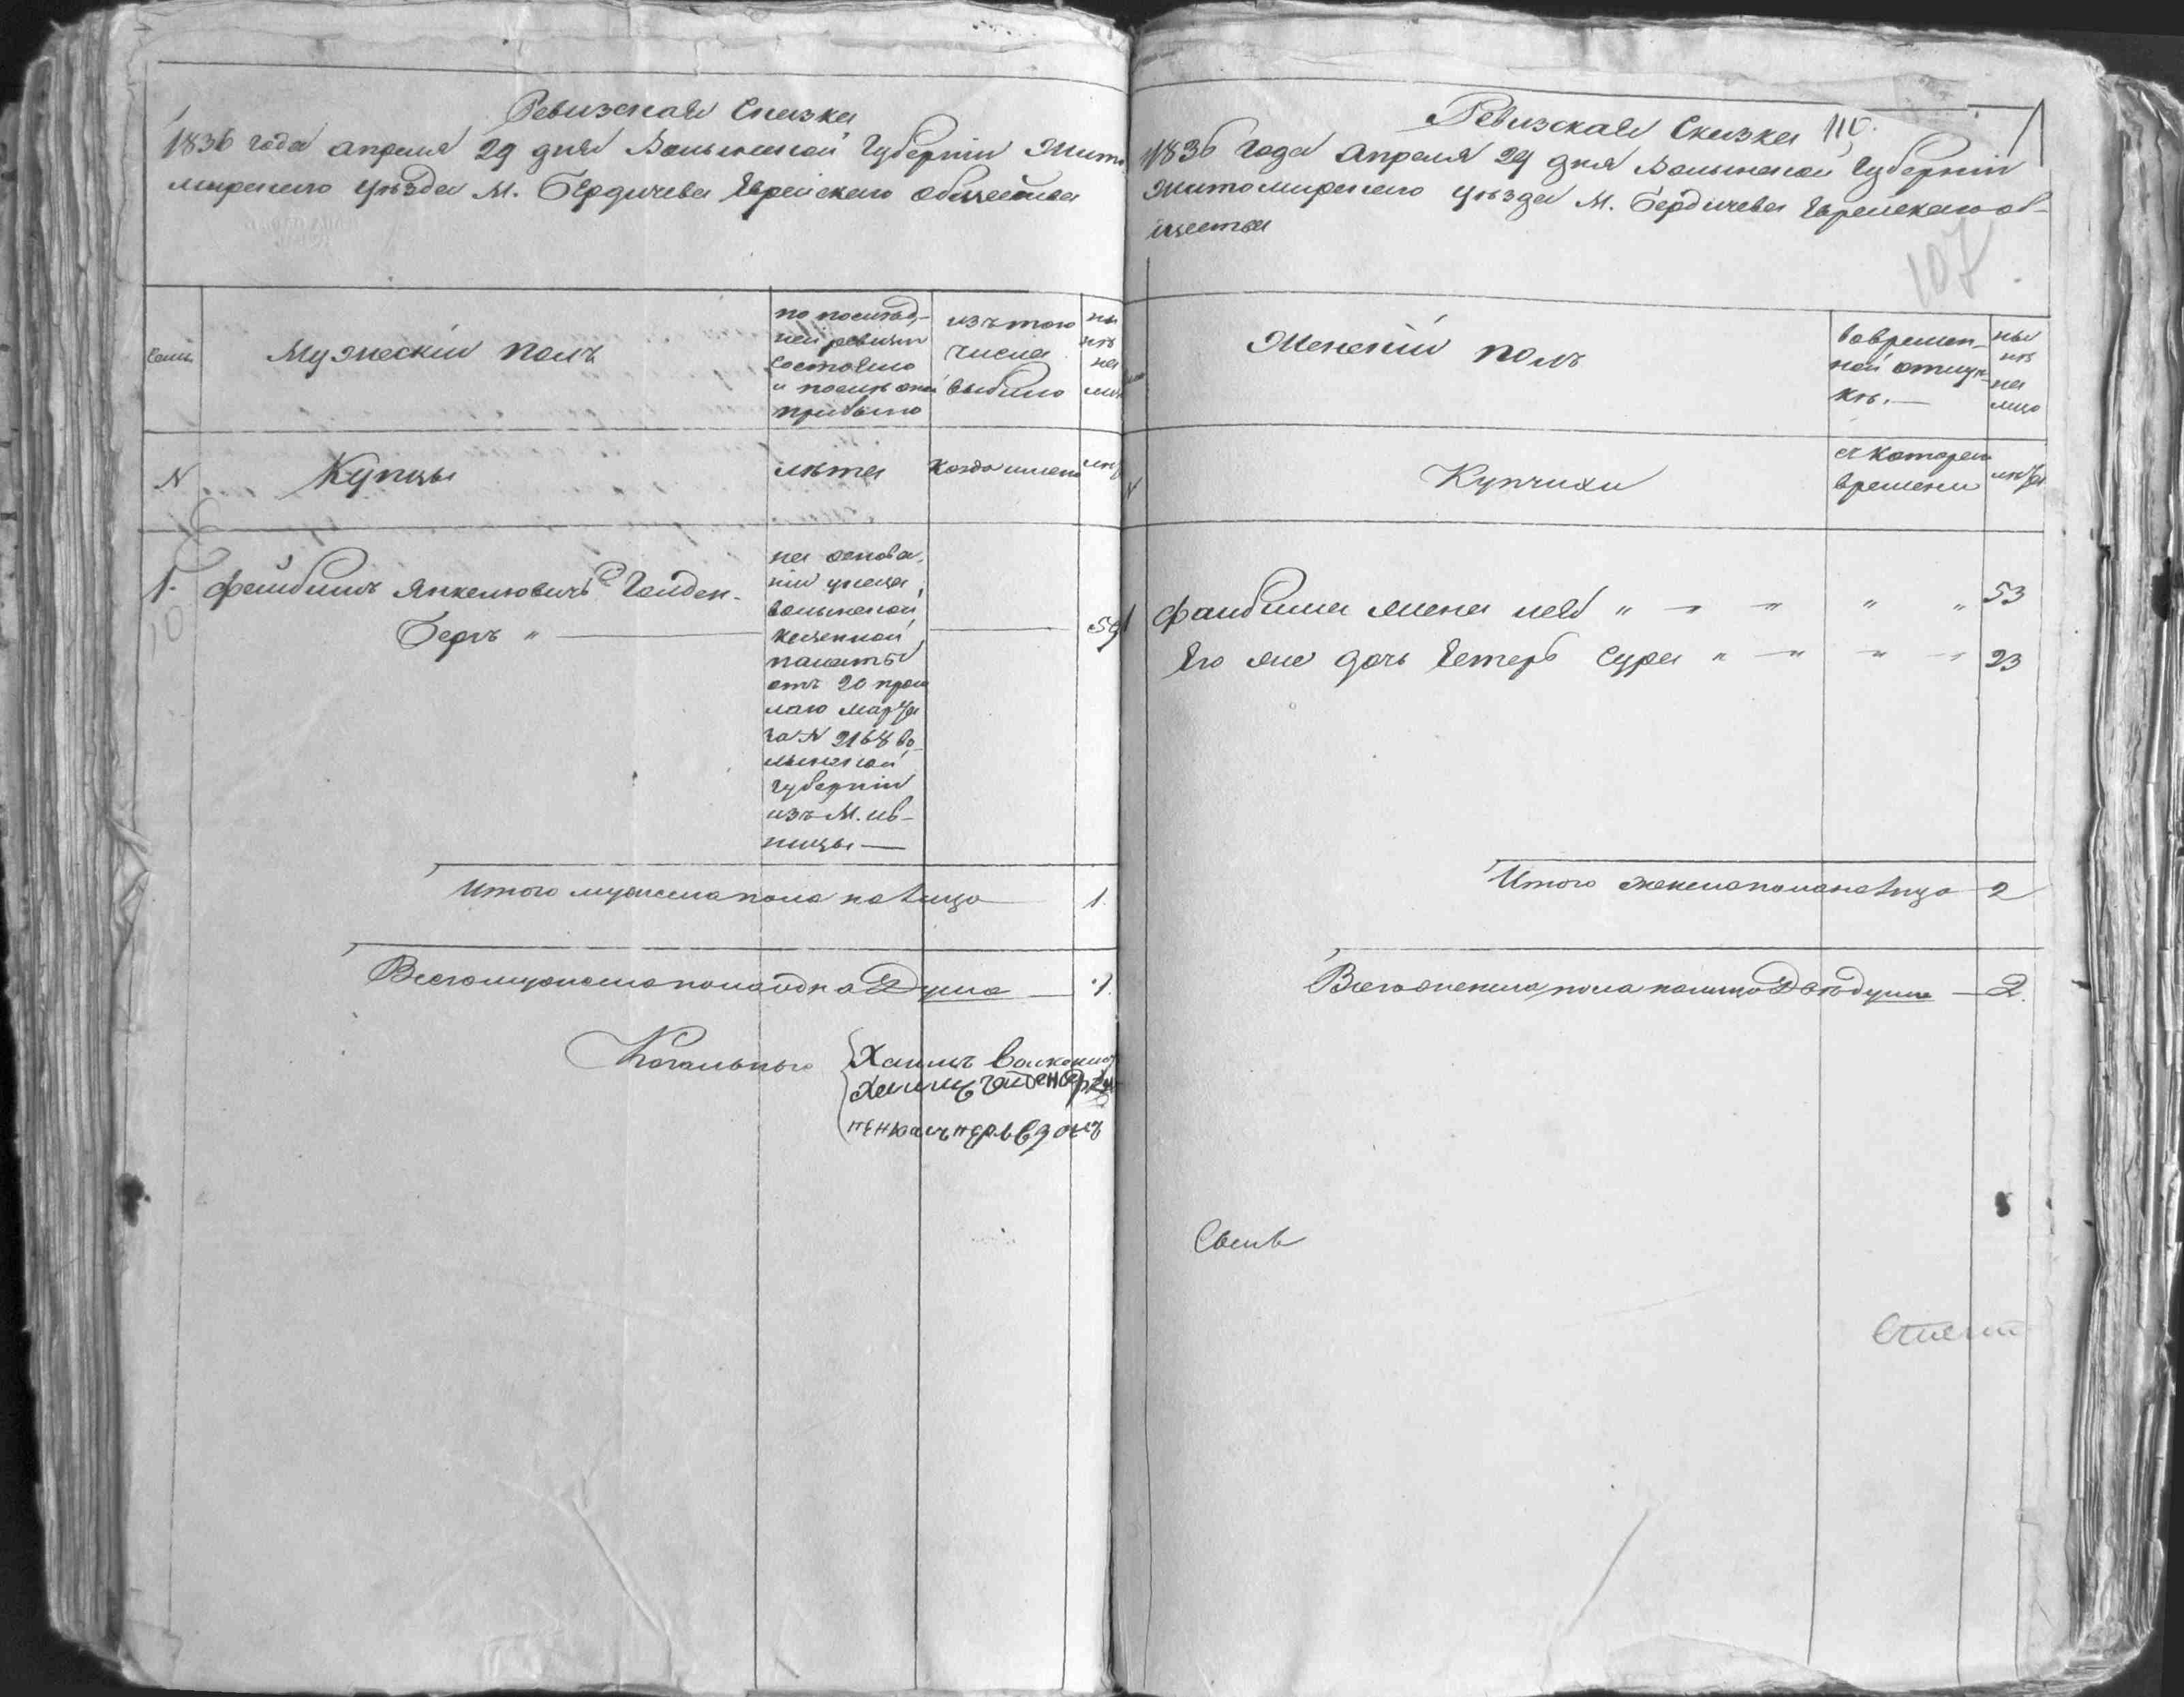 Ревизская Сказка
1836 года апреля 29 дня Волынской Губернiи Жито
мирского уѣзда М. Бердичева Еврейского общества
Семьи
Мужескiй полъ
по послѣд-
ней ревизiи
состояло
и послѣ оной
прибыло
изъ того
числа
выбыло
ны
нѣ
на
лицо
N
Купцы
лѣта
когда имено
лѣта
1.
Файбишъ Янкелювичъ Голден-
бергъ "
на основа-
нiи указа
волынской
казенной
палаты
отъ 20 прош
лаго марта
за N 2168 во-
лынской
губернiи
изъ М. ив-
ницы
59
Итого мужеска пола на лицо 1.
Всего мужеска пола одна Душа 1.
Кагальные
Хаимъ Волконс
Хаимъ
Ревизская Сказка 110.
1836 года Апреля 29 дня Волынской Губернiи
Житомирского уѣзда М. Бердичева Еврейского об-
щества
107
Женскiй полъ
вовремен-
ной отлуч-
кѣ.
ны
нѣ
на
лицо
N
Купчихи
съ котораго
времени
лѣта
1
Файбиша жена лея " " " " " 53
Его же дочь Естеръ Сура " " " " 23
Итого женска пола на лицо 2
Всего женска пола на лицо Двѣ души 2.